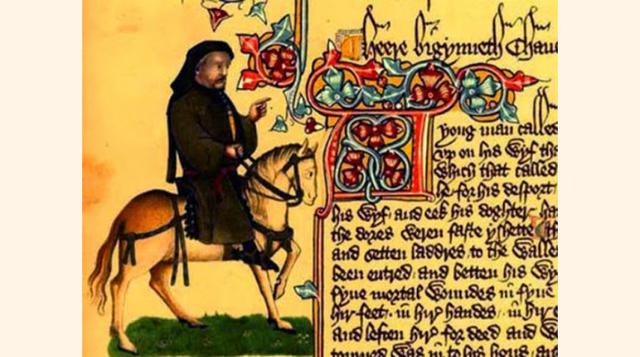 Heere bigynneth Chau
Yong man calle
vp on his wyf tha
which that called
he for his desport
his wyf and eek his doghter ha
the dores weren faste yshette
and setten laddres to the walle
been entred and betten his wy
fyue mortal woundes in fyue
hir feet in hir handes in hir
and leften hir for deed and W
tourned was in to his hous and